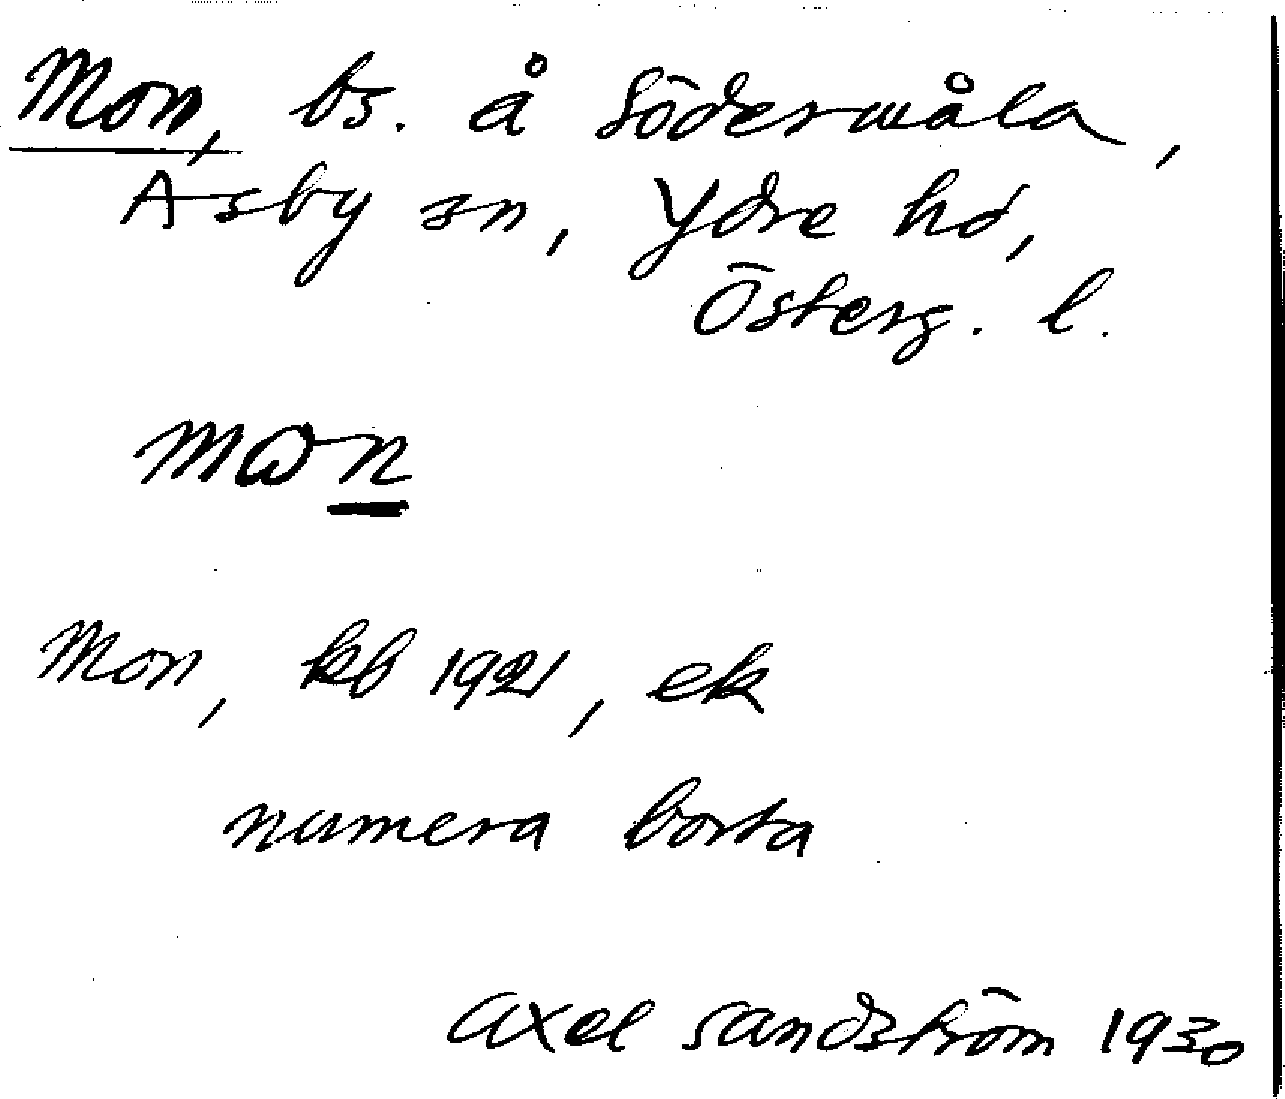 Mon, bs. å Södermåla,
Asby sn, Ydre hd,
Österg. l.
Mon, kb 1921, ek
numera borta
Axel Sandström 1930